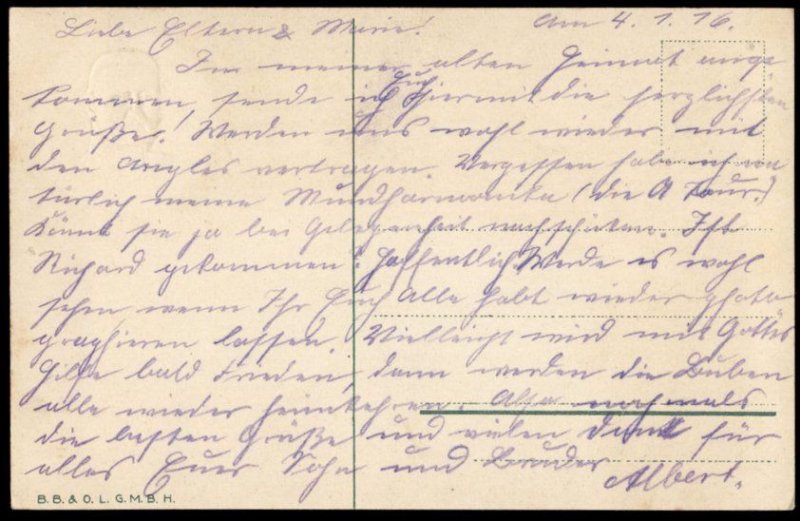 Liebe Eltern & Marie! Am 4.1.16.
In meiner alten Heimat ange
kommen, sende ich Euch hiermit die herzlichsten
Grüße! Werden uns wohl wieder mit
den Angles vertragen. Vergessen habe ich na
türlich meine Mundharmonika (die A Tour.)
Könnt sie ja bei Gelegenheit nachschicken. Ist
Richard gekommen? Hoffentlich. Werde es wohl
sehen wenn Ihr Euch alle habt wieder photo
graphieren lassen. Vielleicht wird mit Gottes
Hilfe bald Frieden, dann werden die Buben
alle wieder heimkehren. Also nochmals
die besten Grüße und vielen Dank für
alles Euer Sohn und Bruder
Albert.
B.B.& O.L.G.M.B.H.